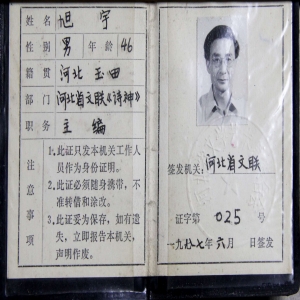 姓名 旭宇
性别 男 年龄 46
籍贯 河北 玉田
部门 河北省文联《诗神》
职务 主编
注意事项
1.此证只发本机关工作人
员作为身份证明。
2.此证必须随身携带,不
准转借和涂改。
3.此证妥为保存,如有遗
失,立即报告本机关,
声明作废。
签发机关:河北省文联
证字第 025 号
一九八七年六月 日签发